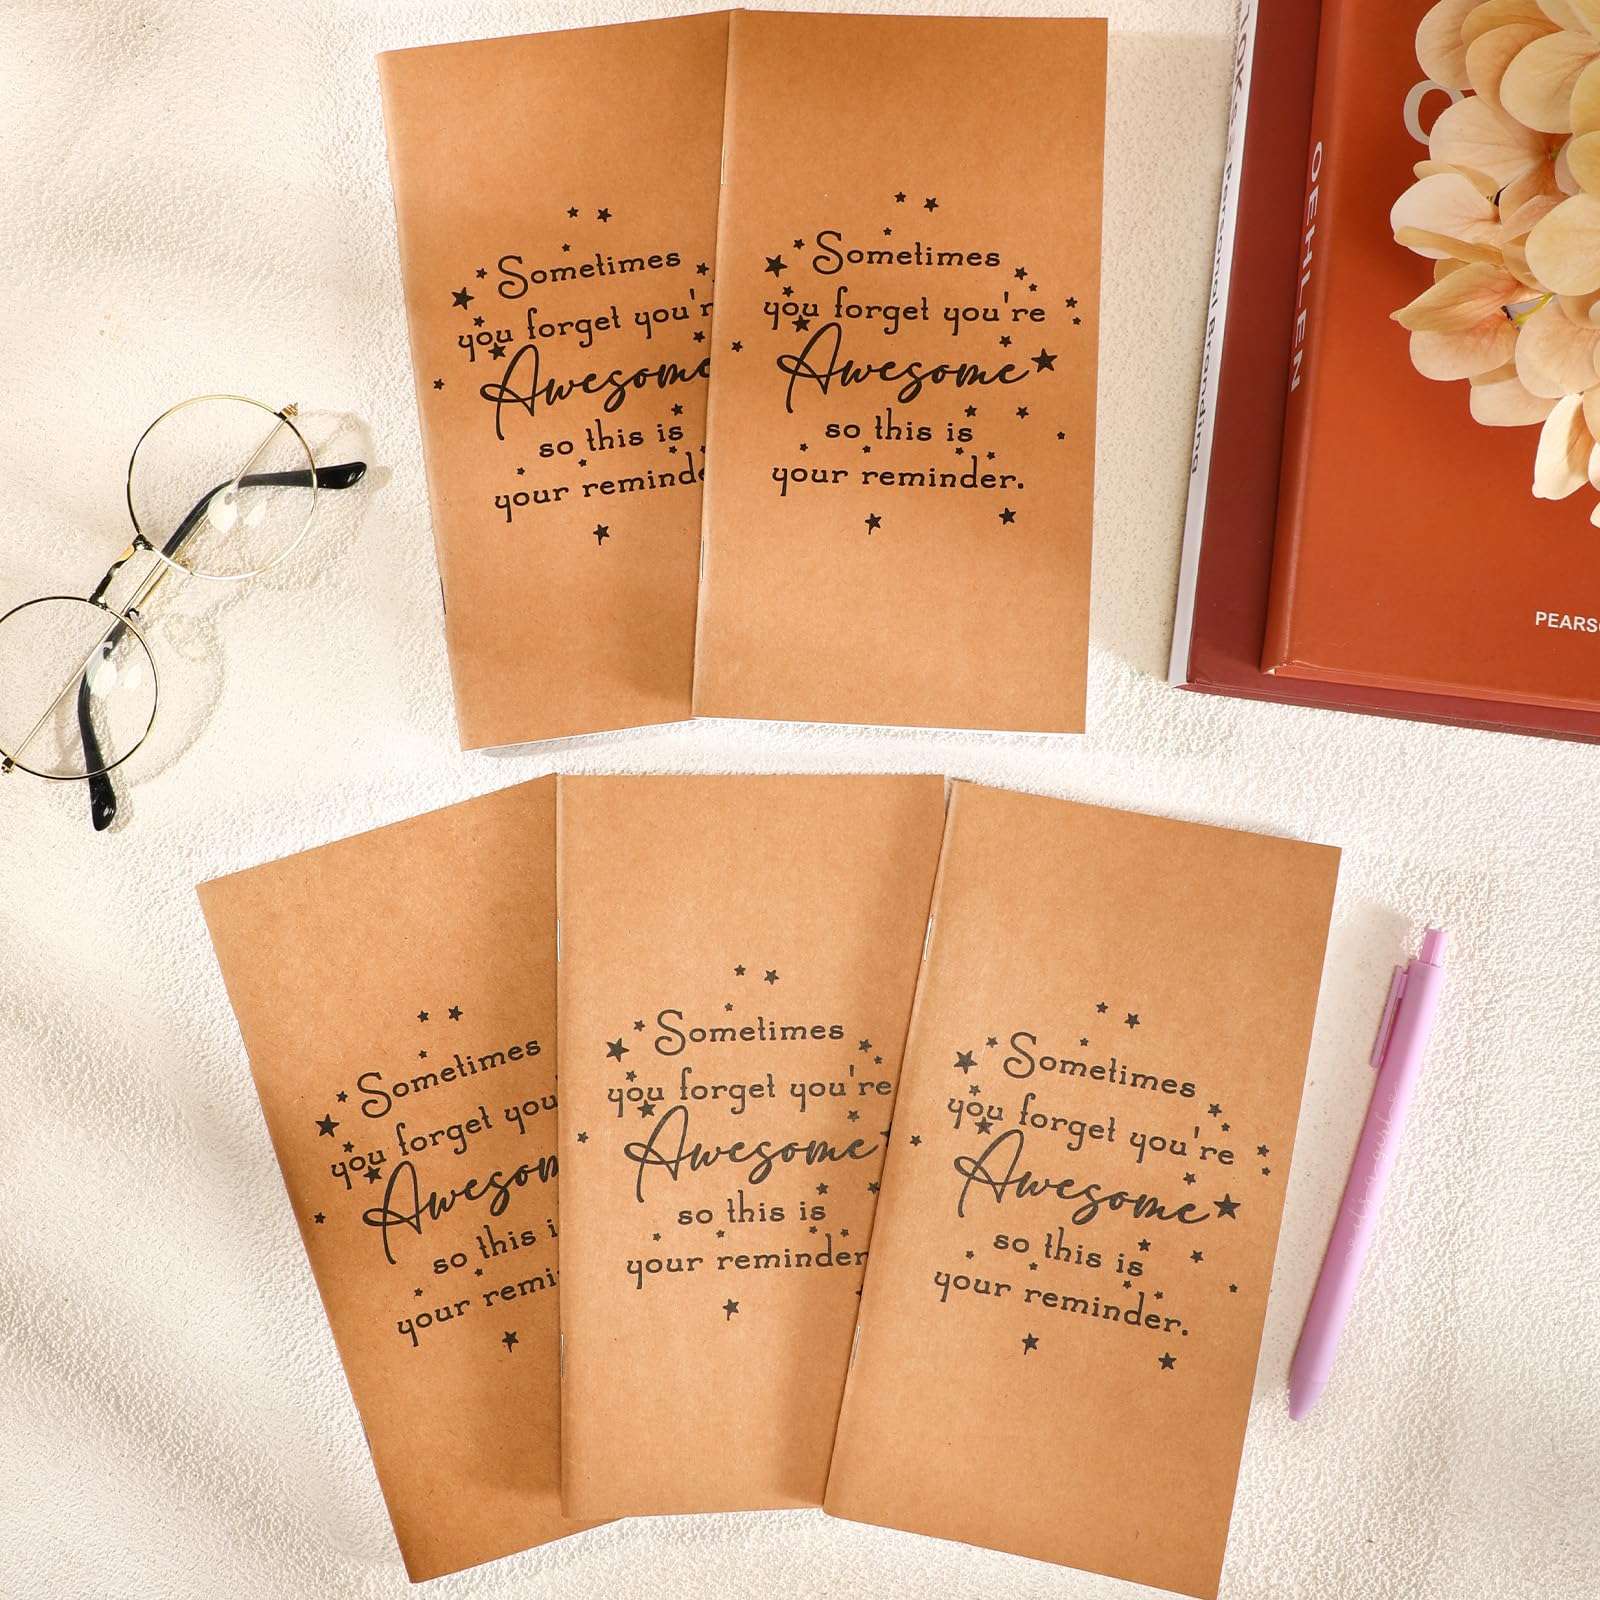 Sometimes
you forget you'r
Awesome
so this is
your remind
Sometimes
you forget you're
Awesome
so this is
your reminder.
Personal Branding
OEHLEN
PEARS
Sometimes
you forget you
Awesom
so this i
your remi
Sometimes
you forget you're
Awesome
so this is
your reminder
Sometimes
you forget you're
Awesome
so this is
your reminder.